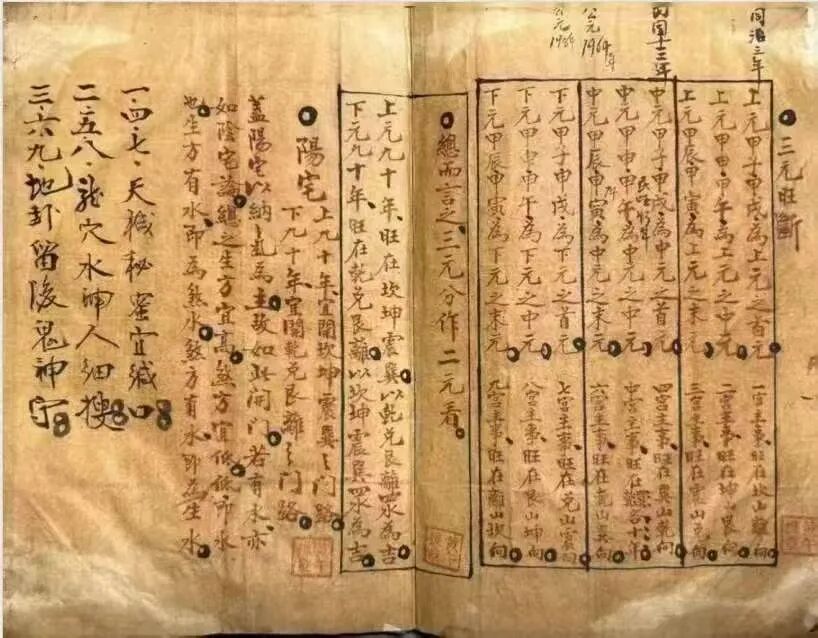 同治三年
民國十三年
公元1964年
公元1984
三元旺斷
上元甲子甲戌為上元之首元 一宮主事旺在坎山離向
上元甲申甲午為上元之中元 二宮主事旺在坤山艮向
上元甲辰甲寅為上元之末元 三宮主事旺在震山兌向
中元甲子甲戌為中元之首元 四宮主事旺在巽山乾向
中元甲申甲午為中元之中元 中宮主事旺在
中元甲辰甲寅為中元之末元 六宮主事旺在乾山巽向
下元甲子甲戌為下元之首元 七宮主事旺在兌山震向
下元甲申甲午為下元之中元 八宮主事旺在艮山坤向
下元甲辰甲寅為下元之末元 九宮主事旺在離山坎向
總而言之三元分作二元看
上元九十年旺在坎坤震巽以乾兌艮離四水為吉
下元九十年旺在乾兌艮離以坎坤震巽四水為吉
陽宅
上九十年宜開坎坤震巽之門路
下九十年宜開乾兌艮離之門路
蓋陽宅以納氣為主故如此開門若有水亦
如陰宅論總之生方宜高煞方宜低低即水
也生方有水即為煞水煞方有水即為生水
一四七天機秘蜜宜緘口
二五八龍穴水神人細搜
三六九地卦留後鬼神守